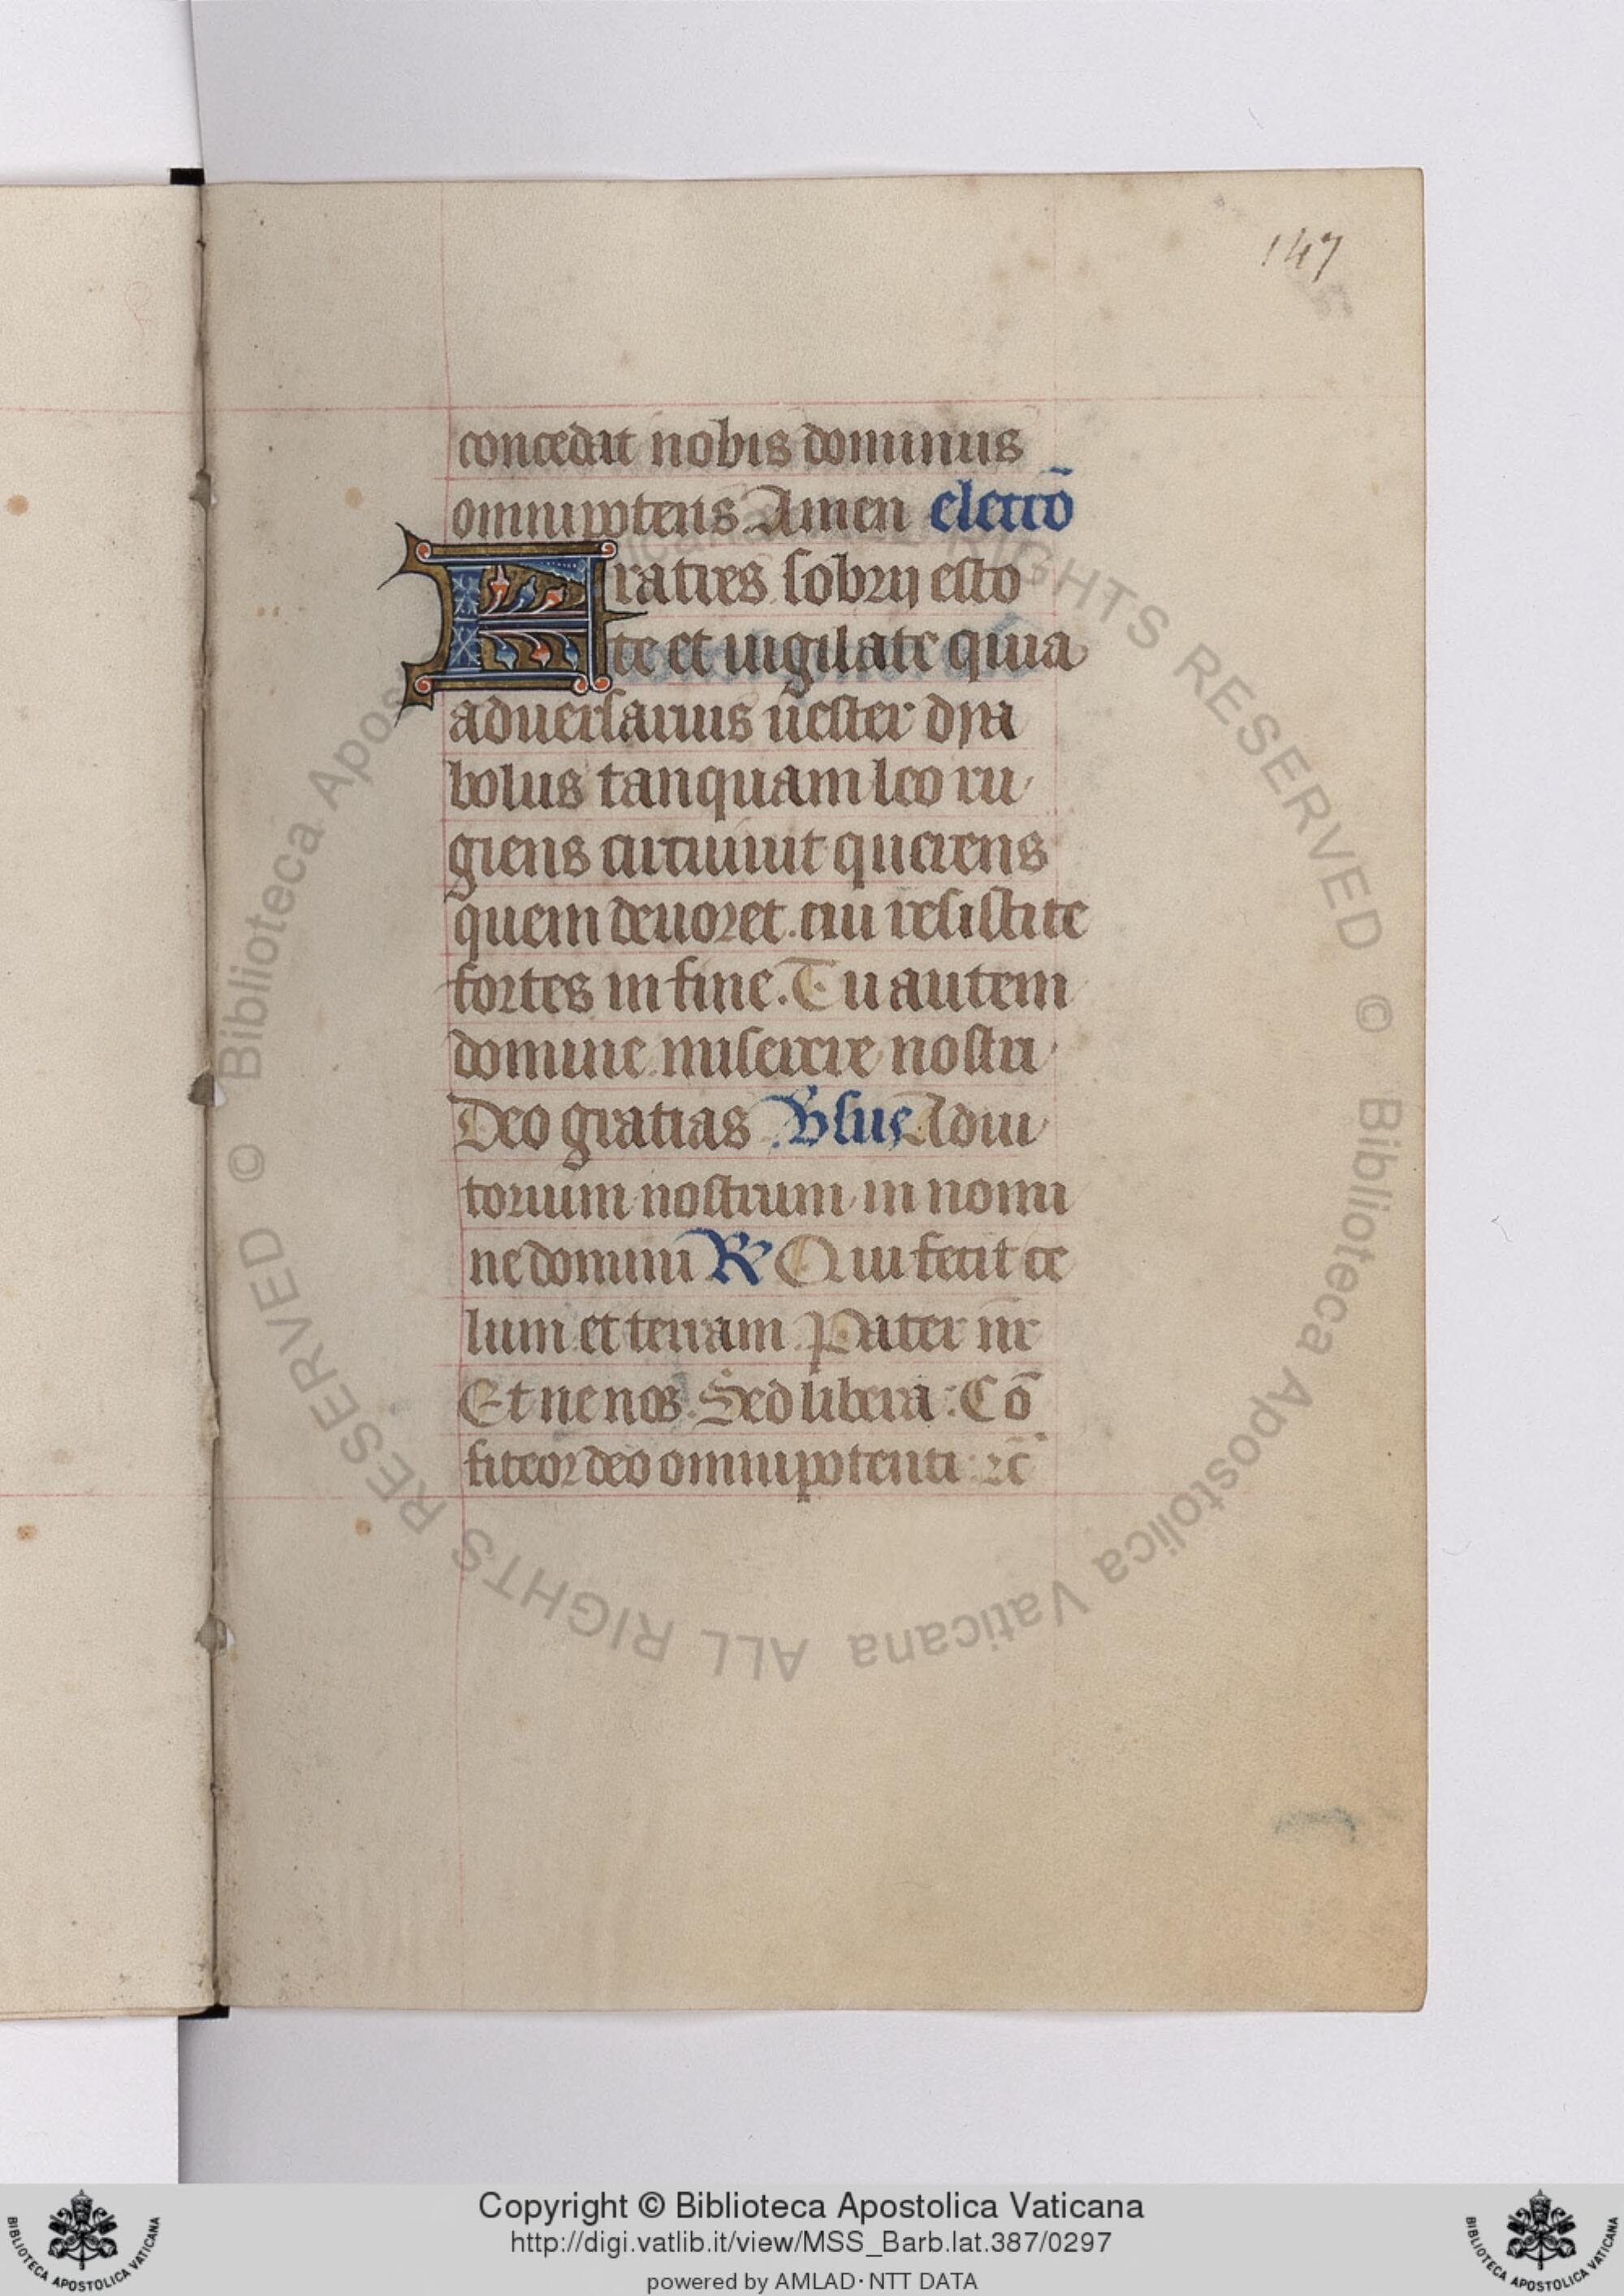 147
concedat nobis dominus
omnipotens Amen lectiō
Fratres sobrij esto
te et uigilate quia
aduersarius uester dya
bolus tanquam leo ru
giens circuiuit querens
quem deuoret. cui resistite
fortes in fine. Tu autem
domine miserere nostri
Deo gratias Adiu
torium nostrum in nomi
ne domini R Qui fecit ce
lum et terram Pater nr̄
Et ne nos. Sed libera : Cō
fiteor deo omnipotenti ⁊c̄
© Biblioteca Apostolica Vaticana ALL RIGHTS RESERVED © Biblioteca Apostolica Vaticana ALL RIGHTS RESERVED
Copyright © Biblioteca Apostolica Vaticana
http://digi.vatlib.it/view/MSS_Barb.lat.387/0297
powered by AMLAD·NTT DATA
BIBLIOTECA APOSTOLICA VATICANA
BIBLIOTECA APOSTOLICA VATICANA